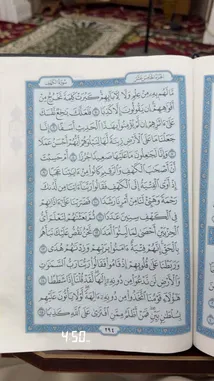 الجزء الخامس عشر
سورة الكهف
مَّا لَهُم بِهِۦ مِنْ عِلْمٍ وَلَا لِأٓبَآئِهِمْ كَبُرَتْ كَلِمَةً تَخْرُجُ مِنْ
أَفْوَٰهِهِمْ إِن يَقُولُونَ إِلَّا كَذِبًا ٥ فَلَعَلَّكَ بَٰخِعٌ نَّفْسَكَ
عَلَىٰٓ ءَاثَٰرِهِمْ إِن لَّمْ يُؤْمِنُوا۟ بِهَٰذَا ٱلْحَدِيثِ أَسَفًا ٦ إِنَّا
جَعَلْنَا مَا عَلَى ٱلْأَرْضِ زِينَةً لَّهَا لِنَبْلُوَهُمْ أَيُّهُمْ أَحْسَنُ عَمَلًا
٧ وَإِنَّا لَجَٰعِلُونَ مَا عَلَيْهَا صَعِيدًا جُرُزًا ٨ أَمْ حَسِبْتَ
أَنَّ أَصْحَٰبَ ٱلْكَهْفِ وَٱلرَّقِيمِ كَانُوا۟ مِنْ ءَايَٰتِنَا عَجَبًا
٩ إِذْ أَوَى ٱلْفِتْيَةُ إِلَى ٱلْكَهْفِ فَقَالُوا۟ رَبَّنَآ ءَاتِنَا مِن لَّدُنكَ
رَحْمَةً وَهَيِّئْ لَنَا مِنْ أَمْرِنَا رَشَدًا ١٠ فَضَرَبْنَا عَلَىٰٓ ءَاذَانِهِمْ
فِى ٱلْكَهْفِ سِنِينَ عَدَدًا ١١ ثُمَّ بَعَثْنَٰهُمْ لِنَعْلَمَ أَىُّ
ٱلْحِزْبَيْنِ أَحْصَىٰ لِمَا لَبِثُوٓا۟ أَمَدًا ١٢ نَّحْنُ نَقُصُّ عَلَيْكَ نَبَأَهُم
بِٱلْحَقِّ إِنَّهُمْ فِتْيَةٌ ءَامَنُوا۟ بِرَبِّهِمْ وَزِدْنَٰهُمْ هُدًى ١٣
وَرَبَطْنَا عَلَىٰ قُلُوبِهِمْ إِذْ قَامُوا۟ فَقَالُوا۟ رَبُّنَا رَبُّ ٱلسَّمَٰوَٰتِ
وَٱلْأَرْضِ لَن نَّدْعُوَا۟ مِن دُونِهِۦٓ إِلَٰهًا لَّقَدْ قُلْنَآ إِذًا شَطَطًا ١٤
هَٰٓؤُلَآءِ قَوْمُنَا ٱتَّخَذُوا۟ مِن دُونِهِۦٓ ءَالِهَةً لَّوْلَا يَأْتُونَ عَلَيْهِم
بِسُلْطَٰنٍۭ بَيِّنٍ فَمَنْ أَظْلَمُ مِمَّنِ ٱفْتَرَىٰ عَلَى ٱللَّهِ كَذِبًا ١٥
٢٩٤
4:50